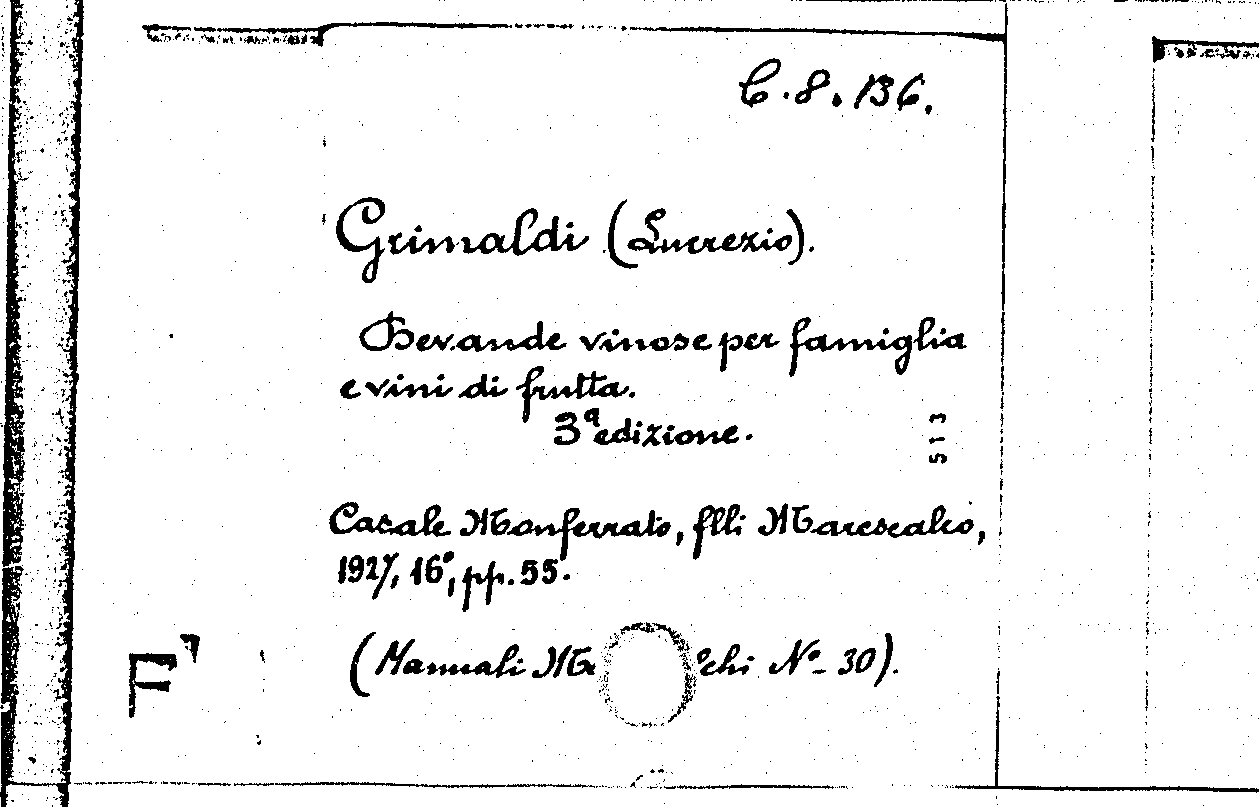 C.8.136.
Grimaldi (Lucrezio).
Bevande vinose per famiglia
e vini di frutta.
3ª edizione.
513
Casale Monferrato, flli Marescalco,
1927, 16°, pp. 55.
F
(Manuali chi Nº- 30).